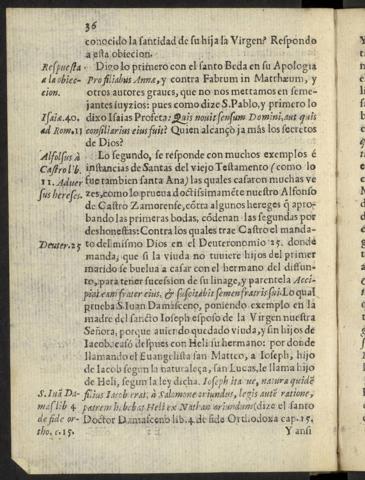 36
conocido la santidad de su hija la Virgen? Respondo
a esta obiecion.
Respuesta
a la obiec-
cion.
Digo lo primero con el santo Beda en su Apologia
Pro filiabus Anna, y contra Fabrum in Matthæum, y
otros autores graues, que no nos mettamos en seme-
jantes iuyzios: pues como dize S. Pablo, y primero lo
Isaiæ. 40.
ad Rom. 11
dixo Isaias Profeta: Quis nouit sensum Domini, aut quis
consiliarius eius fuit? Quien alcançò ja más los secretos
de Dios?
Alfonsus à
Castro lib.
11. Aduer
sus hereses.
Lo segundo, se responde con muchos exemplos é
instancias de Santas del viejo Testamento (como lo
fue tambien santa Ana) las quales casaron muchas ve-
zes, como lo prueua doctissimamẽte nuestro Alfonso
de Castro Zamorense, cõtra algunos hereges q̃ apro-
bando las primeras bodas, cõdenan las segundas por
deshonestas: Contra los quales trae Castro el manda-
Deuter. 25
to del mismo Dios en el Deuteronomio 25. donde
manda, que si la viuda no tuuiere hijos del primer
marido se buelua a casar con el hermano del diffun-
to, para tener sucession de su linage, y parentela Acci-
piat eam frater eius, & suscitabit semen fratris sui. Lo qual
prueba S. Iuan Damasceno, poniendo exemplo en la
madre del sancto Ioseph esposo de la Virgen nuestra
Señora, porque auiendo quedado viuda, y sin hijos de
Iacob, casó despues con Heli su hermano: por donde
llamando el Euangelista san Matteo, a Ioseph, hijo
de Iacob segun la naturaleça, san Lucas, le llama hijo
de Heli, segun la ley dicha.
S. Iuã Da-
mas lib. 4
de fide or-
tho. c. 15.
filius Iacob erat, à Salomone oriundus, legis autẽ ratione,
(dize el santo
Doctor Damasceno lib. 4. de fide Orthodoxa cap. 15.
Y ansi